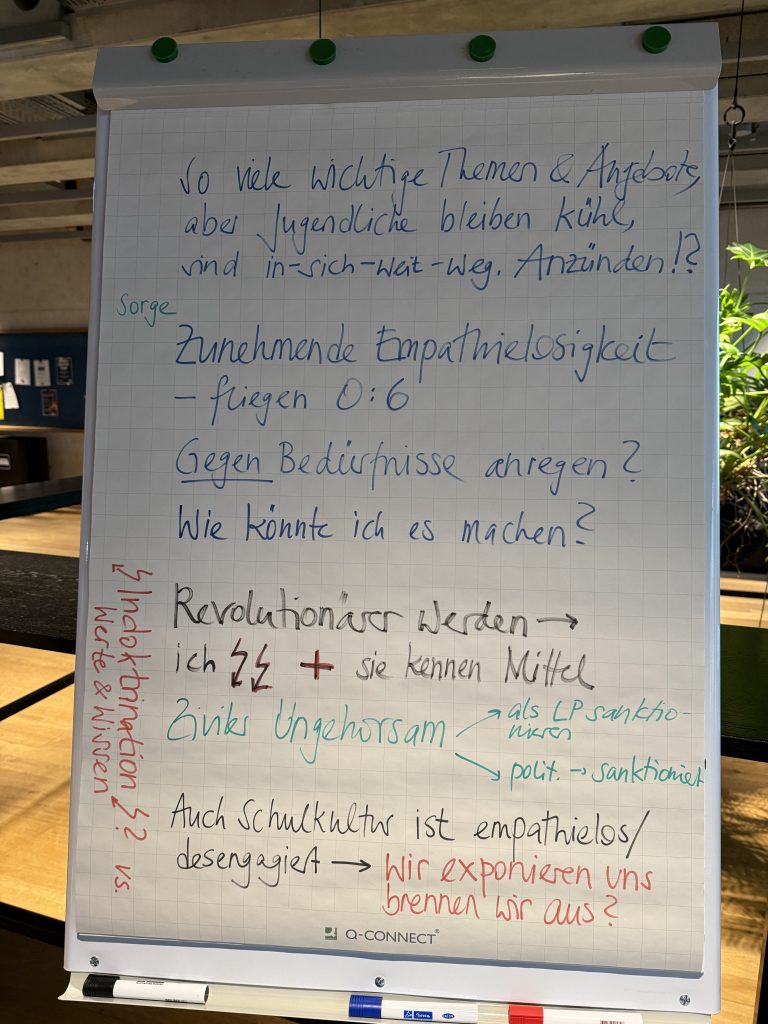 So viele wichtige Themen & Angebote,
aber Jugendliche bleiben kühl,
sind in-sich-weit-weg. Anzünden!?
Sorge
Zunehmende Empathielosigkeit
– fliegen 0:6
Gegen Bedürfnisse anregen?
Wie könnte ich es machen?
Revolutionärer werden →
ich ↯↯ + sie kennen Mittel
Ziviler Ungehorsam
↗ als LP sanktio-
nieren
↘ polit. → sanktioniert
↯ Indoktrination ↯? vs.
Werte & Wissen
Auch Schulkultur ist empathielos/
desengagiert → Wir exponieren uns
brennen wir aus?
Q-CONNECT®